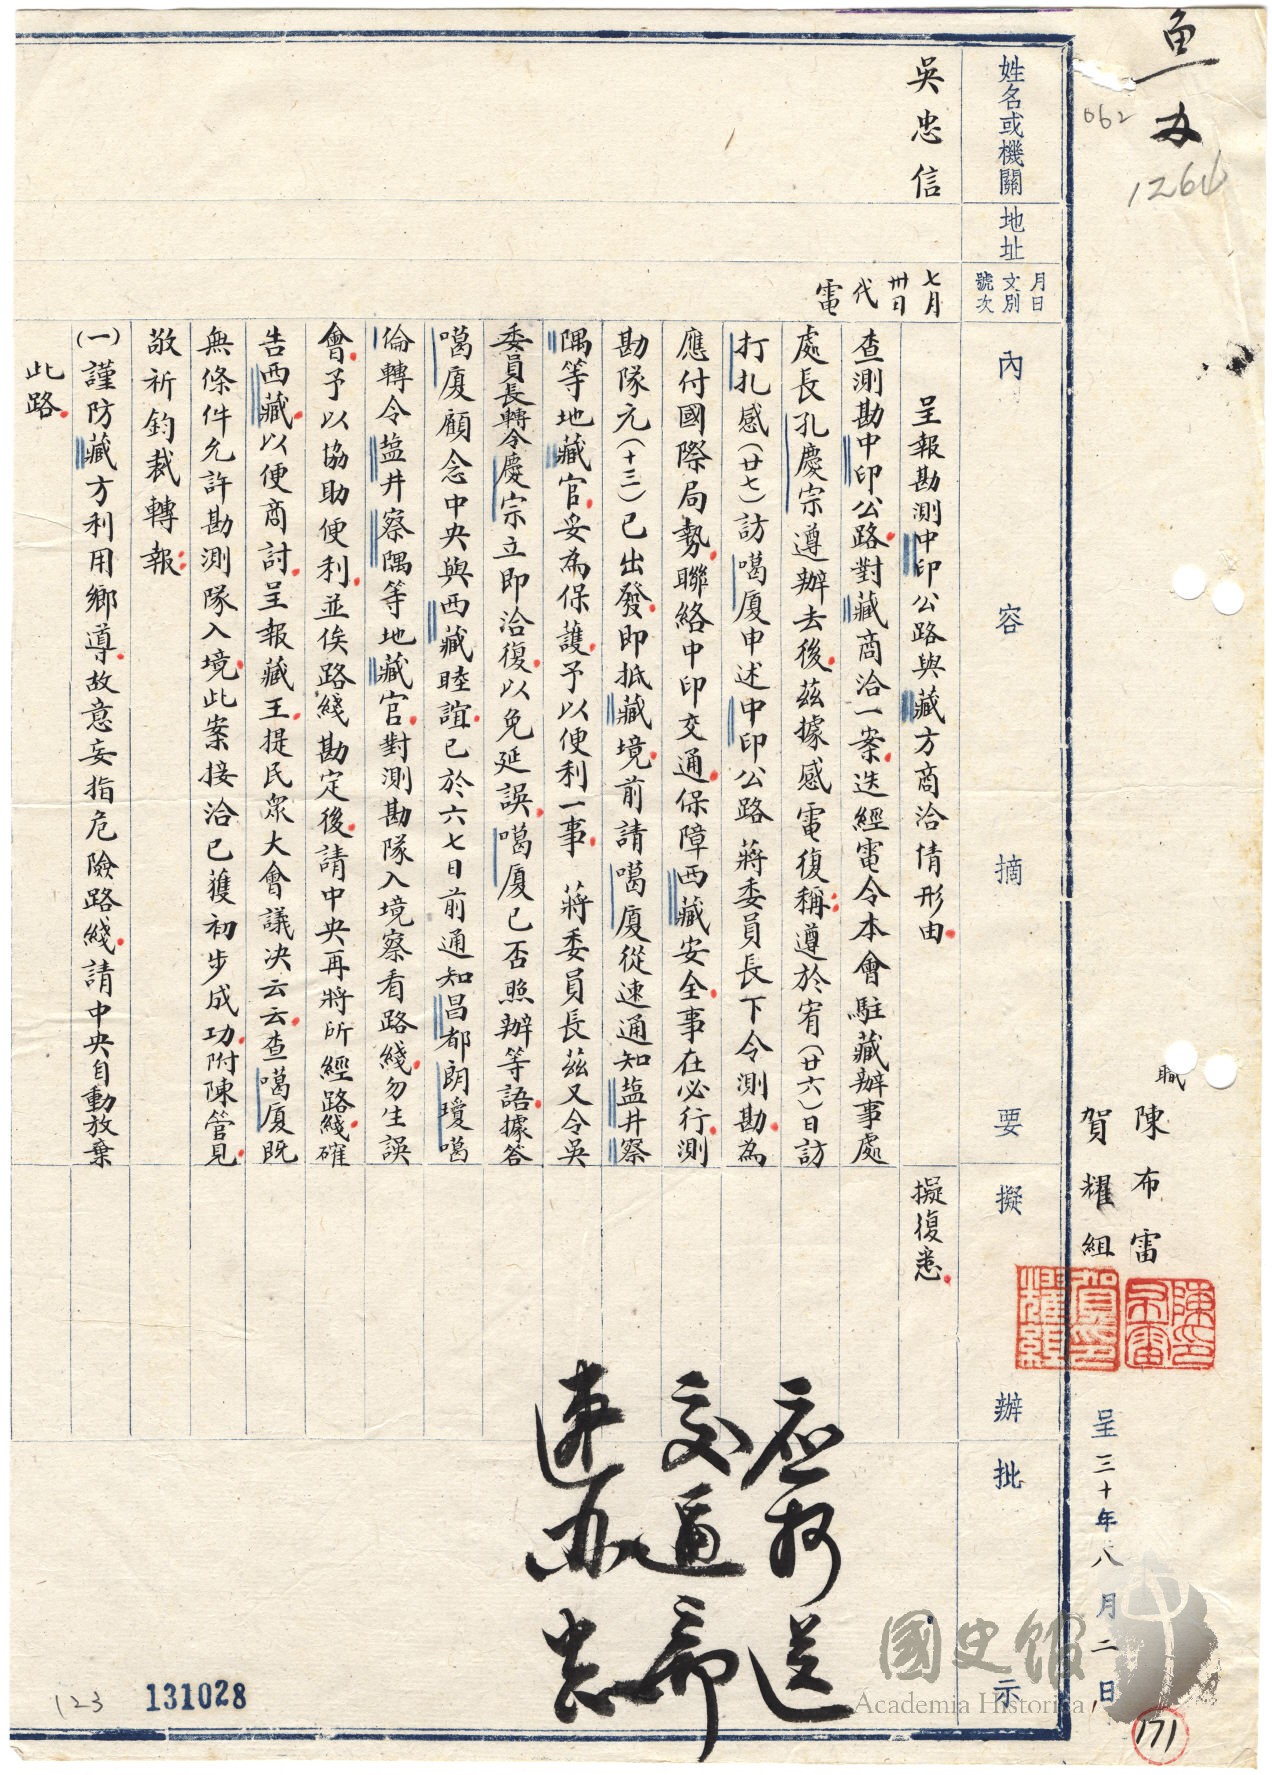 魚
办
062
1264
職 陳布雷
賀耀組
呈 三十年八月二日
171
姓名或機關
地址
月日
文別
號次
內容摘要
擬辦
批示
吳忠信
七月
卅日
代
電
呈報勘測中印公路與藏方商洽情形由
查測勘中印公路對藏商洽一案迭經電令本會駐藏辦事處
處長孔慶宗遵辦去後茲據感電復稱遵於宥(廿六)日訪
打扎感(廿七)訪噶厦申述中印公路 蔣委員長下令測勘為
應付國際局勢聯絡中印交通保障西藏安全事在必行測
勘隊元(十三)已出發即抵藏境前請噶厦從速通知盐井察
隅等地藏官妥為保護予以便利一事 蔣委員長茲又令吳
委員長轉令慶宗立即洽復以免延誤噶厦已否照辦等語據答
噶厦顧念中央與西藏睦誼已於六七日前通知昌都朗瓊噶
倫轉令盐井察隅等地藏官對測勘隊入境察看路綫勿生誤
會予以協助便利並俟路綫勘定後請中央再將所經路綫確
告西藏以便商討呈報藏王提民眾大會議決云云查噶厦既
無條件允許勘測隊入境此案接洽已獲初步成功附陳管見
敬祈鈞裁轉報
(一)謹防藏方利用鄉導故意妄指危險路綫請中央自動放棄
此路
擬復悉
应抄送
交通部
速办
陳布雷印
賀耀組印
國史館
Academia Historica
123
131028